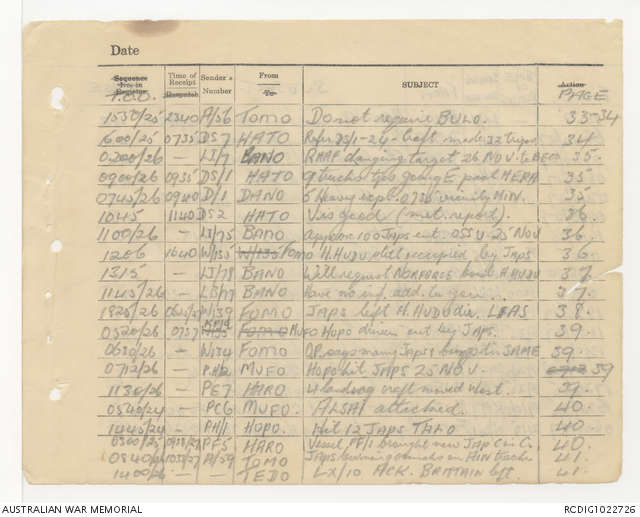 Date
Sequence No. in Register Time of Receipt Despatch Sender's Number From To SUBJECT Action
T.O.O. PAGE
1530/25 2340 A/56 TOMO Do not repair BULO. 33-34
1600/25 0735 DS7 HATO 34
0200/26 — LJ/7 BANO RAAF changing target 26 NOV. to 35.
0900/26 0935 DS/1 HATO 9 trucks past HERA 35
0745/26 0940 D/1 DANO 5 Heavy expl. 0735 vicinity MIN. 35
1045 1140 DS2 HATO Vis good (met. report). 36.
1100/26 — LJ/75 BANO approx 100 Japs OSSU 25 NOV 36.
1206 1640 W/135 W/135 FOMO H. HUDU still occupied by JAPS 36
1315 — LJ/78 BANO Will request NORFORCE bomb H. HUDU 37
1145/26 — LJ/77 BANO Have no inf. add. to 37.
1825/26 W/39 FOMO JAPS left H. HUDU LEAS 38.
0520/26 0757 FOMO MUFO Hopo driven out by JAPS. 39
0630/26 — W/34 FOMO O.P. says many Japs SAME 39.
0712/26 — MUFO Hopo hit JAPS 25 NOV. 39
1130/26 — PE7 HARO 4 landing craft moved West. 39.
0540/24 — PC6 MUFO. ALSAI attacked. 40.
1445/24 — PH/1 HOPO. Hit 12 JAPS TALO 40.
0300/25 PF5 HARO Vessel brought new Jap C in C. 40.
0840 A/59 TOMO JAPS 41.
1400/26 — — TEDO LX/10 ACK. BRITTAIN left. 41.
AUSTRALIAN WAR MEMORIAL RCDIG1022726